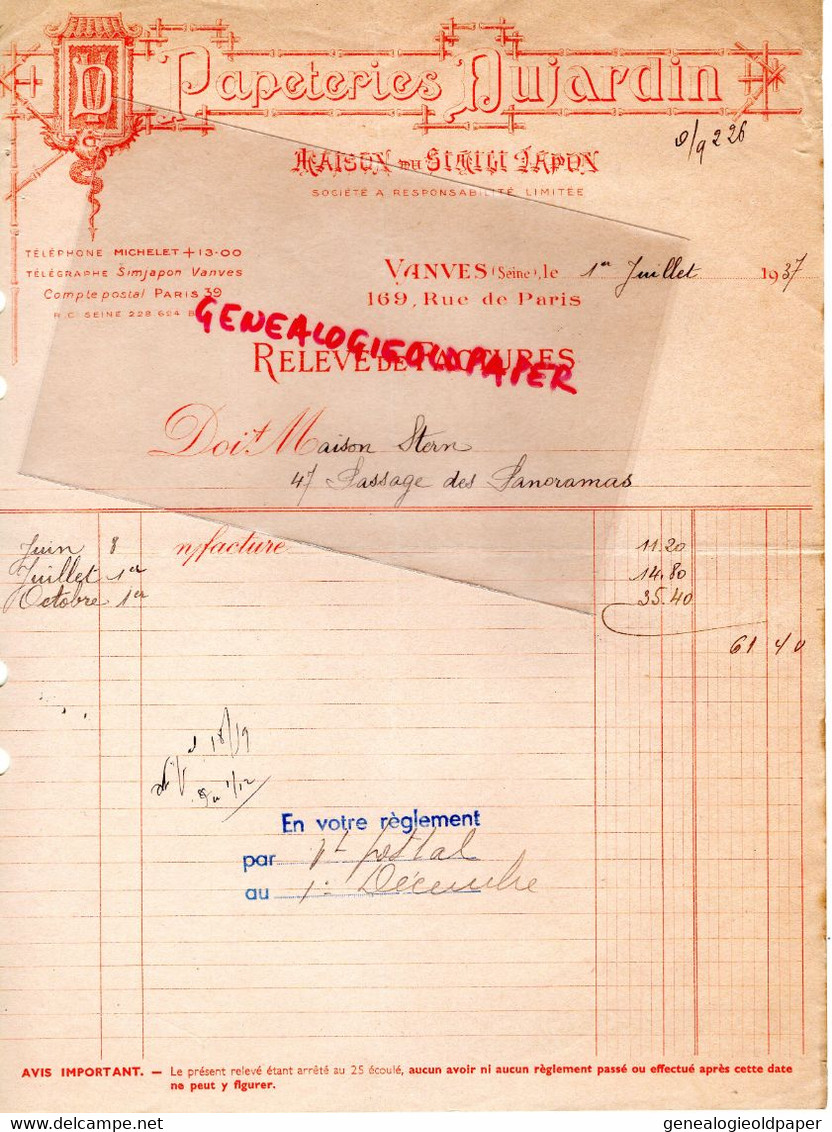 D
Papeteries Dujardin
MAISON DU SIMILI JAPON
SOCIÉTÉ A RESPONSABILITÉ LIMITÉE
TÉLÉPHONE MICHELET +13-00
TÉLÉGRAPHE Simjapon Vanves
Compte postal PARIS 39
R.C. SEINE 228 624 B
VANVES (Seine), le 1er Juillet 1937
169, Rue de Paris
GENEALOGIEOLDPAPER
RELEVÉ DE FACTURES
Doit Maison Stern
47 Passage des Panoramas
Juin 8 n/facture 11.20
Juillet 1er 14.80
Octobre 1er 35.40
61 40
18/19
1/12
En votre règlement
par postal
au 1er Décembre
AVIS IMPORTANT. — Le présent relevé étant arrêté au 25 écoulé, aucun avoir ni aucun règlement passé ou effectué après cette date
ne peut y figurer.
genealogieoldpaper